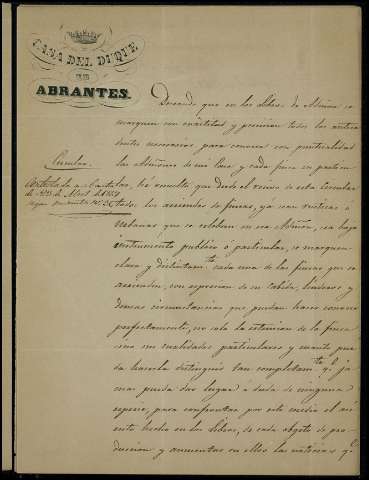 CASA DEL DUQUE
DE
ABRANTES.
Deseando que en los libros de Admon. se
marquen con exactitud y precision todos los antece
dentes necesarios para conocer con puntualidad
Circular.
las Admones. de mi Casa y cada finca en particu
lar, he resuelto, que desde el recivo de esta Circular
de 1859
todos los arriendos de fincas, ya sean rusticas ó
urbanas que se celebren en esa Admon, sea bajo
instrumento publico ó particular, se marquen
clara y distintamte. cada una de las fincas que se
arriendan, con espresion de su cabida, linderos y
demas circunstancias que puedan hacer conocer
perfectamente, no solo la estension de la finca
sino sus cualidades particulares y cuanto pue
da hacerla distinguir tan completamte. qe. ja
mas pueda dar lugar á duda de ninguna
especie, para confrontar por este medio el asi
ento hecho en los libros, de cada objeto de pro
duccion y aumentar en ellos las noticias qe.